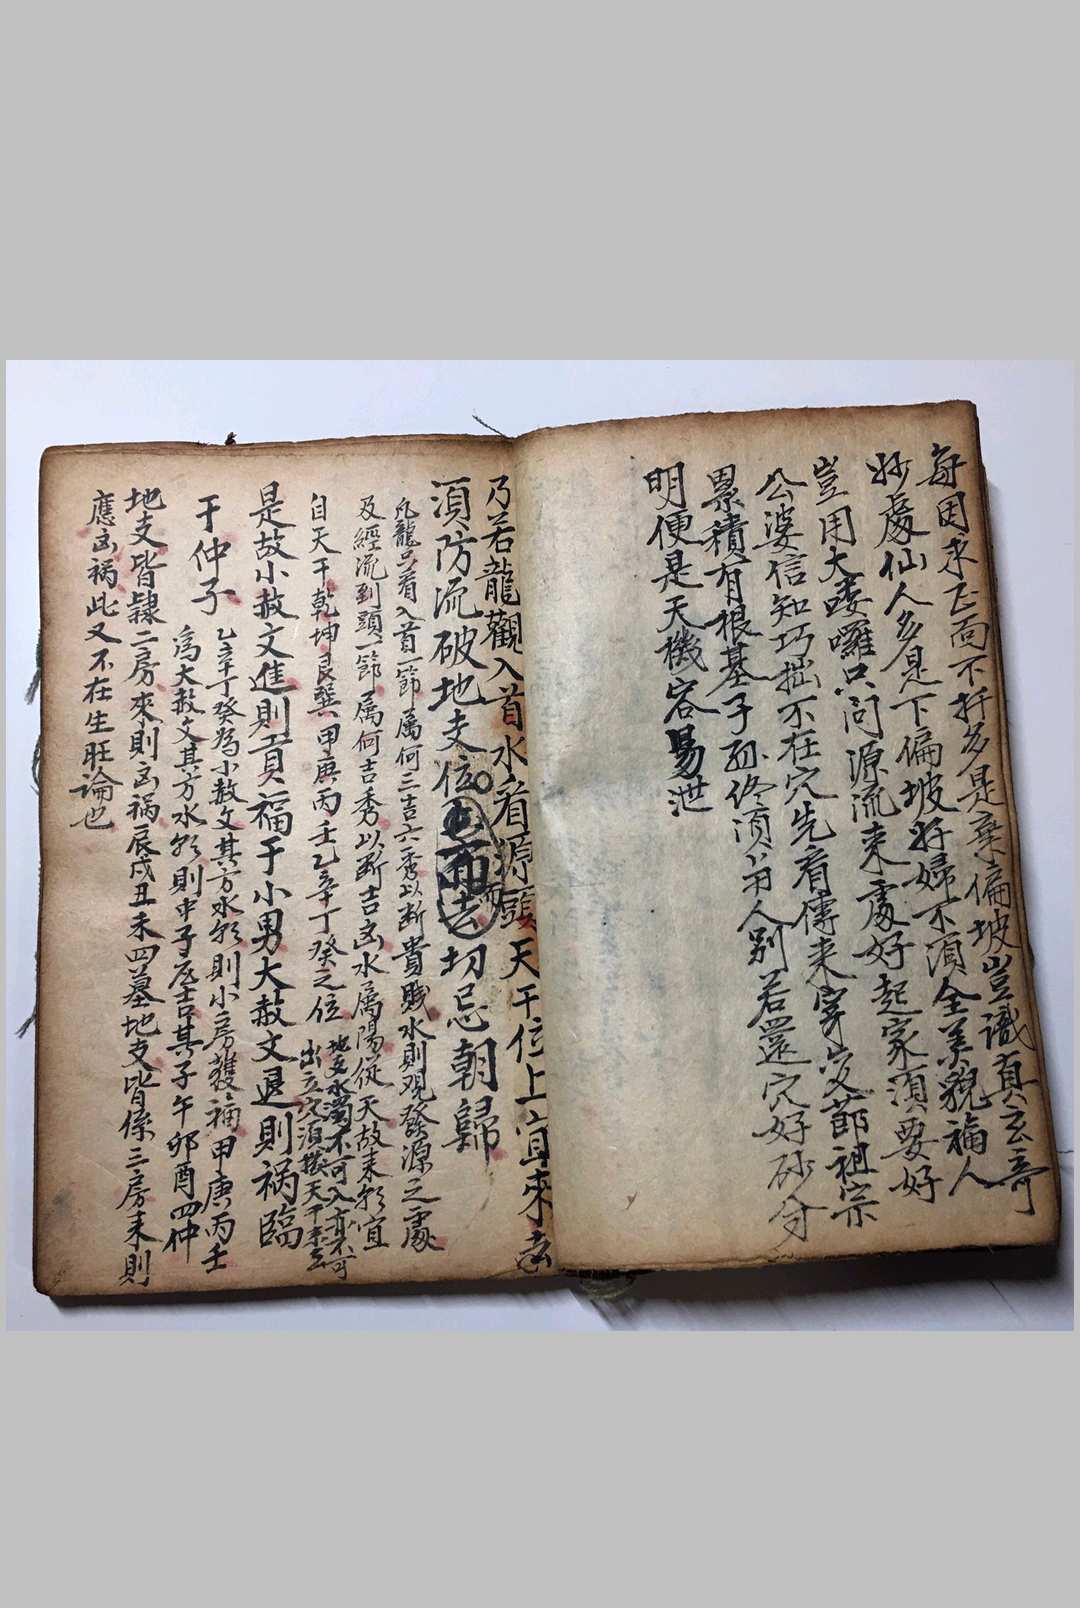 每因求正面不扦多是棄偏坡豈識真玄奇
妙處仙人多是下偏坡好婦不須全美貌福人
豈用大嘍囉只问源流来處好起家須要好
公婆信知巧拙不在穴先看傳来穿変莭祖宗
累積有根基子孫终湏人别若還穴好砂分
明便是天機容易泄
乃若龍觀入首水看源頭天干位上宜來去
湏防流破地支位而去切忌朝歸
凡龍只看入首一節属何三吉六秀以断貴賎水則观發源之處
及經流到頭一節属何吉秀以断吉凶水属陽從天故来宜
自天干乾坤艮巽甲庚丙壬乙辛丁癸之位
地支水濁不可入亦不可
出立穴湏撥天干来去
是故小赦文進則貢福于小男大赦文退則祸臨
于仲子
乙辛丁癸為小赦文其方水則小房獲福甲庚丙壬
為大赦文其方水則中子応吉其子午卯酉四仲
地支皆隸二房來則凶祸辰戍丑未四墓地支皆係三房来則
應凶祸此又不在生旺論也